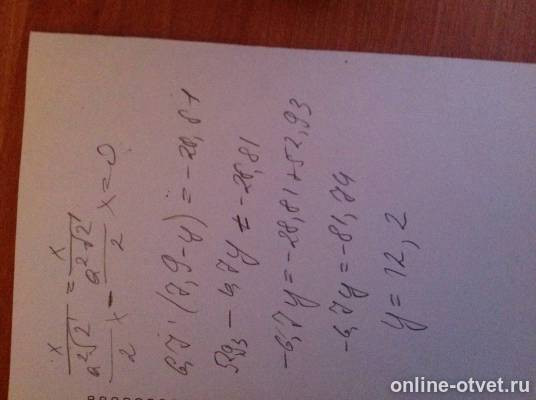 x/a²√2 = x/a²√2
/2 x - /2 x = 0
6,7·(7,9-y) = -28,81
5293 - 6,7y = -28,81
-6,7y = -28,81+52,93
-6,7y = -81,74
y = 12,2
online-otvet.ru